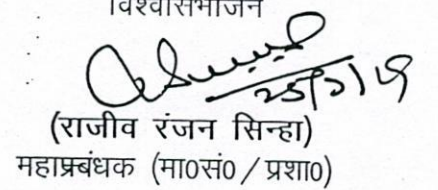 विश्वासभाजन
(राजीव रंजन सिन्हा)
महाप्रबंधक (मा0सं0 / प्रशा0)